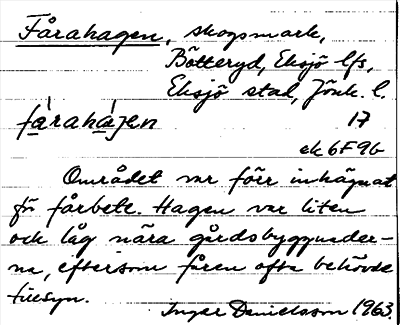 Fårahagen, skogsmark,
Bötteryd, Eksjö lfs,
Eksjö stad, Jönk. l.
fårahàɡen 17
ek 6F9b
Området var förr inhägnat
för fårbete. Hagen var liten
och låg nära gårdsbyggnader-
na, eftersom fåren ofta behövde
tillsyn.
Inger Danielsson 1963.